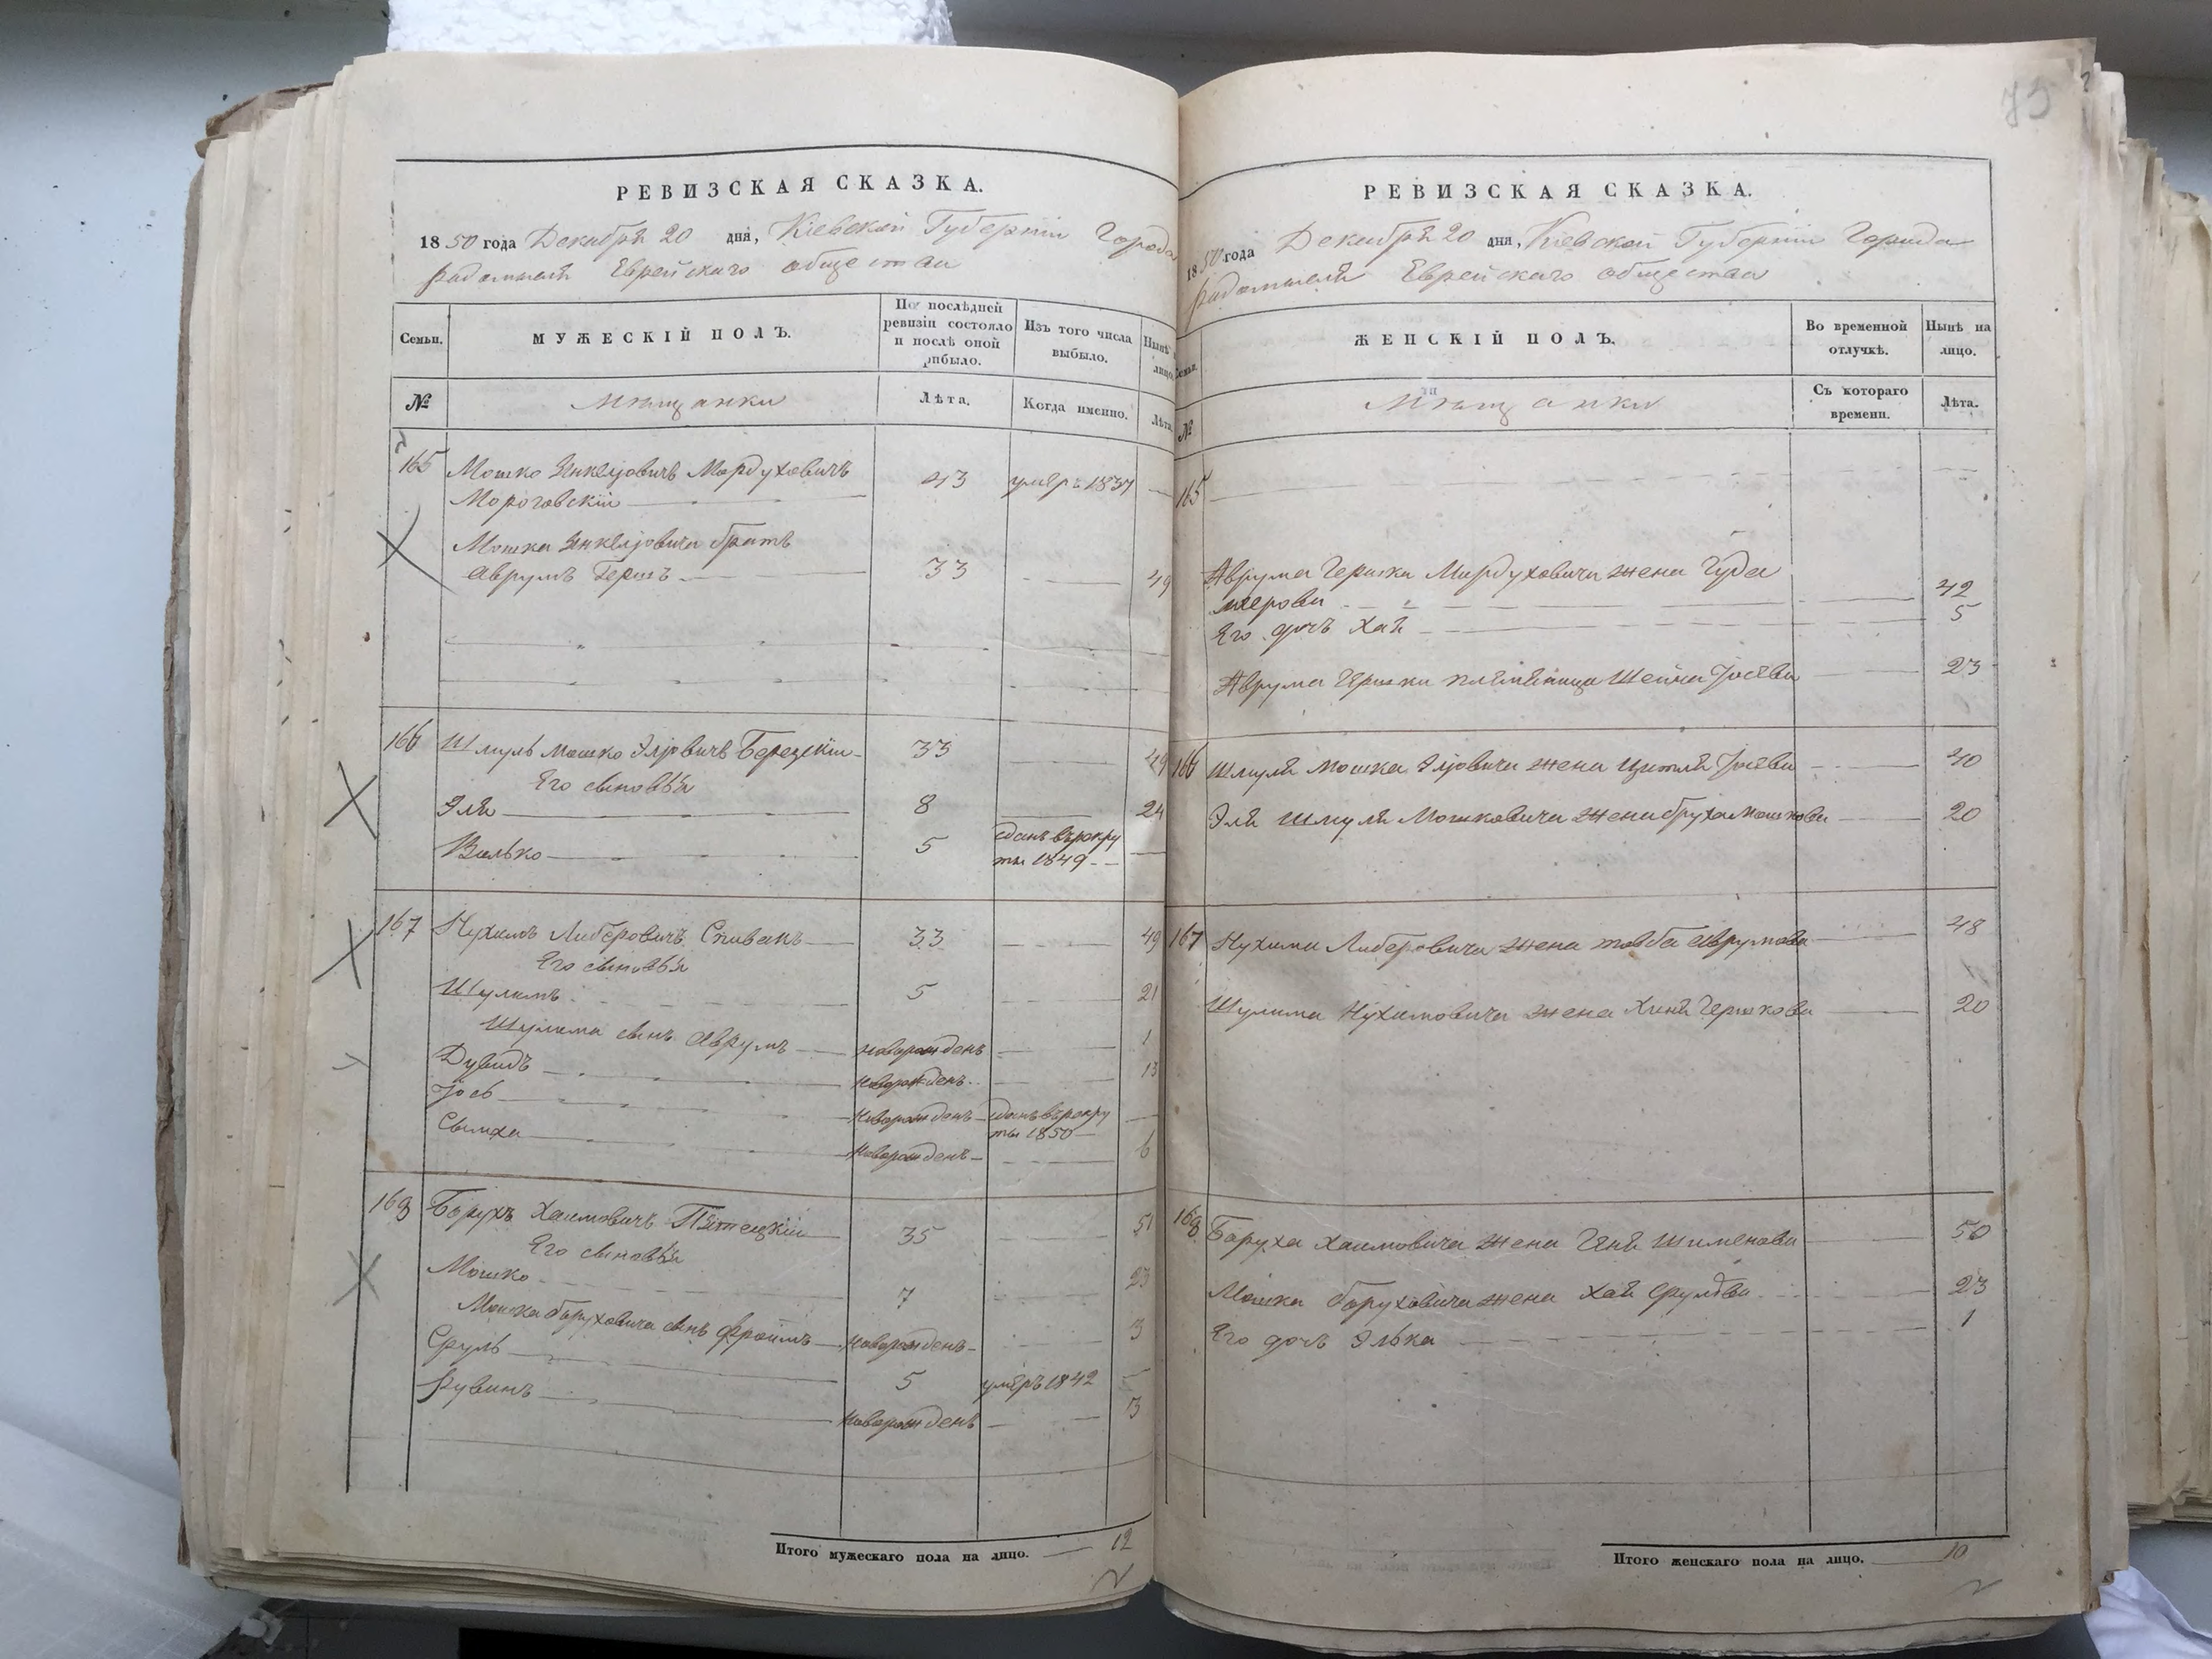 75
РЕВИЗСКАЯ СКАЗКА.
1850 года Декабря 20 дня, Кіевской Губерніи Города
Радомысля Еврейскаго общества
Семьи.
МУЖЕСКІЙ ПОЛЪ.
По послѣдней ревизіи состояло и послѣ оной рибыло.
Изъ того числа выбыло.
Нынѣ лицо.
№
Мѣщанки
Лѣта.
Когда именно.
Лѣта.
165 Мошко Янкелiовичъ Мордуховичъ
Мороговскій 43 умеръ 1837
Мошка Янкелiовича братъ
Аврумъ Гершъ 33 49
166 Шмуль Мошко Элiовичъ Березскiи 33 49
Его сыновья
Эля 8 24
Волько 5 сданъ въ рекру
ты 1849
167 Нухимъ Либеровичъ Спивакъ 33 49
Его сыновья
Шулимъ 5 21
Шулима сынъ Аврумъ новорожденъ 1
Дувидъ новорожденъ 13
Іось новорожденъ сданъ въ рекру
ты 1850
Сымха новорожденъ 6
168 Борухъ Хаимовичъ 35 51
Его сыновья
Мошко 7 23
Мошка Боруховича сынъ Фроимъ новорожденъ 3
Сруль 5 умеръ 1842
Рувинъ новорожденъ 13
Итого мужескаго пола на лицо. 12
РЕВИЗСКАЯ СКАЗКА.
1850 года Декабря 20 дня, Кіевской Губерніи Города
Радомысля Еврейскаго общества
Семьи.
ЖЕНСКІЙ ПОЛЪ.
Во временной отлучкѣ.
Нынѣ на лицо.
№
Мѣщанки
Съ котораго времени.
Лѣта.
165
Аврума Гершка Мордуховича жена Гуда
42
Его дочь Хая 5
Аврума Гершки племяница Шейна Іосева 23
166 Шмуля Мошка Элiовича жена Цитля Іосева 40
Эли Шмуля Мошковича жена Бруха Мошкова 20
167 Нухима Либеровича жена Товба Аврумова 48
Шулима Нухимовича жена Хиня Гершкова 20
168 Боруха Хаимовича жена Геня Шименова 50
Мошка Боруховича жена Хая Срулева 23
Его дочь Элька 1
Итого женскаго пола на лицо. 10